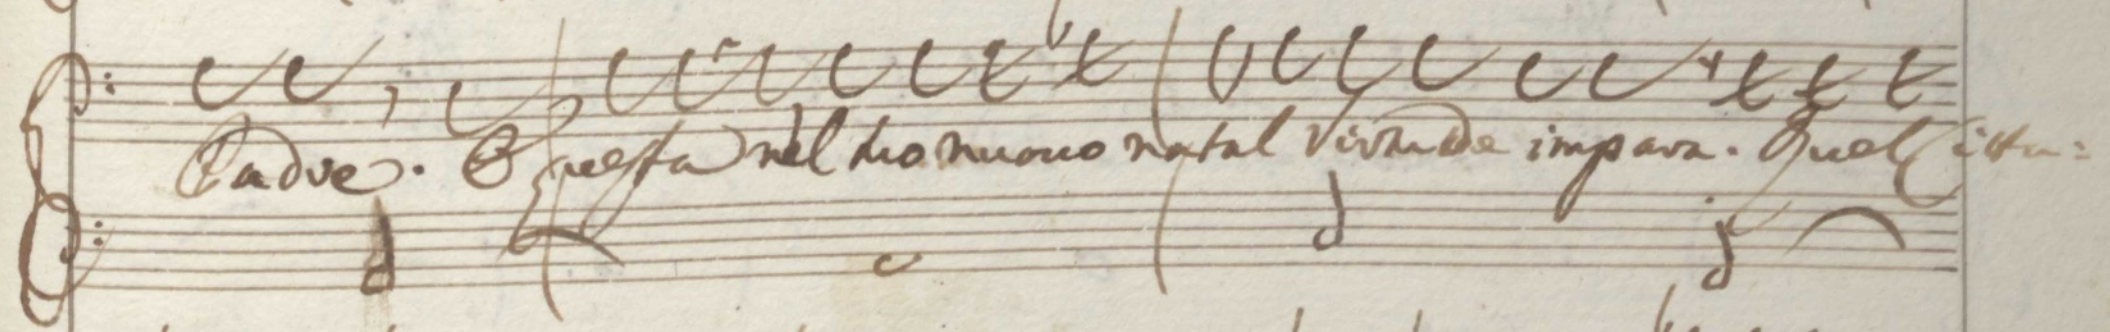 Padre. E questa nel tuo nuouo natal Virtude impara. Quel Citta=